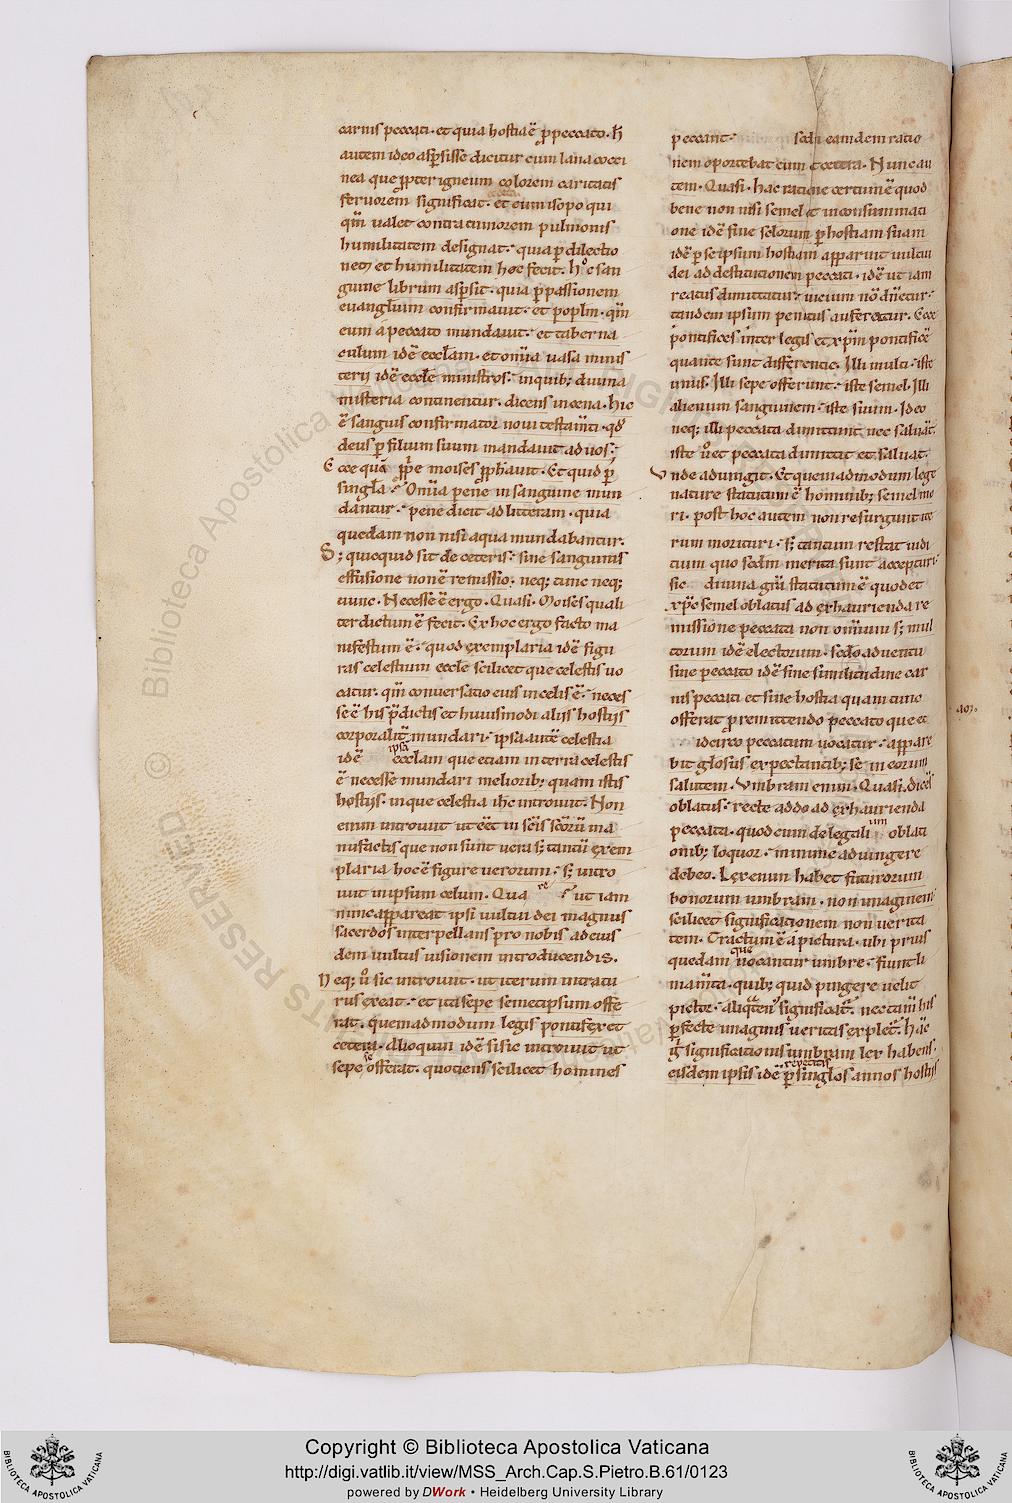 carnis peccati · et quia hostia ē ꝑ peccato · h̄
autem ideo aspsisse dicitur cum lana cocci
nea que ꝓpter igneum colorem caritatis
feruorem significat · et cum isopo qui
qm̄ ualet contra tumorem pulmonis
humilitatem designat · quia ꝑ dilectio
nem et humilitatem hoc fecit · hoc san
guine librum aspsit · quia ꝑ passionem
euangłium confirmauit · et poplm · qm̄
eum a peccato mundauit · et taberna
culum idē ecclam · et om̄ia uasa minis
terij idē eccłe ministros · in quib; diuina
misteria continentur · dicens in cena · hic
ē sanguis confirmator noui testam̄ti · qđ
deus ꝑ filium suum mandauit ad uos ·
Ecce que ipse moises ꝓphauit · Et quid ꝑ
singła · Om̄ia pene in sanguine mun
dantur · pene dicit ad litteram · quia
quedam non nisi aqua mundabantur ·
S; quicquid sit de ceteris · sine sanguinis
effusione non ē remissio · neq; tunc neq;
nunc · Necesse ē ergo · Quasi · Moises quali
ter dictum ē fecit · Ex hoc ergo facto ma
nifestum ē · quod exemplaria idē figu
ras celestium eccłe scilicet que celestis uo
catur · qm̄ conuersatio eius in celis ē · neces
se ē his p̄dictis et huiusmodi alijs hostijs
corporalit̄ mundari · ipsa autē celestia
idē ipsā ecclam que etiam in terra celestis
ē necesse mundari meliorib; quam istis
hostijs · in que celestia ih̄c introiuit · Non
enim introiuit ut eēt in sc̄is sc̄orū ma
nufactis que non sunt uera s; tantū exem
plaria hoc ē figure uerorum · s; intro
iuit in ipsum celum · Quare · ut iam
nunc appareat ipsi uultui dei magnus
sacerdos interpellans pro nobis ad eius
dem uultus uisionem introducendis ·
Neq; ů sic introiuit · ut iterum intratu
rus exeat · et ita sepe semetipsum offe
rat · quemadmodum legis pontifex et
cetera · Alioquin idē si sic introiuit ut
sepe se offerat · quotiens scilicet homines
peccant · scdn eamdem ratio
nem oportebat eum et cetera · Nunc au
tem · Quasi · hac ratione certum ē quod
bene non nisi semel et in consummati
one idē fine sclorum ꝑ hostiam suam
idē ꝑ se ipsum hostiam apparuit uultui
dei ad destitutionem peccati · idē ut iam
reatus dimittatur · uicium nō dn̄etur ·
tandem ipsum penitus auferetur · Ecce
pontifices inter legis et xp̄m pontificē
quante sunt differentie · Illi multi · iste
unus · Illi sepe offerunt · iste semel · Illi
alienum sanguinem · iste suum · Ideo
neq; illi peccata dimittunt nec saluāt ·
iste ůet peccata dimittit et saluat ·
Vnde adiungit · Et quemadmodum lege
nature statutum ē hominib; semel mo
ri · post hoc autem non resurgunt ite
rum morituri · s; tantum restat iudi
tium quo scdm merita sunt accepturi ·
sic diuina grā statutum ē quod et
xp̄c semel oblatus ad exhaurienda re
missione peccata non om̄ium s; mul
torum idē electorum · scdo aduentu
sine peccato idē sine similitudine car
nis peccati et sine hostia quam tunc
offerat ꝑ remittendo peccato que et
idcirco peccatum uocatur · appare
bit glosus expectantib; se in eorum
salutem · Vmbram enim · Quasi · dicēs
oblatus · recte addo ad exhaurienda
peccata · quod cum de legalium oblati
onib; loquor · minime adiungere
debeo · Lex enim habet futurorum
bonorum umbram · non imaginem
scilicet significationem non uerita
tem · Tractum ē a pictura · ubi prius
quedam que uocantur umbre · fiunt li
niam̄ta · quib; quid pingere uelit
pictor · aliqtenus significat̄ · nec tam̄ his
ꝑfecte imaginis ueritas explet̄ · hāc
g̊ significationis umbram lex habens ·
eisdem ipsis idē repetitis ꝑ singłos annos hostijs
401.
Copyright © Biblioteca Apostolica Vaticana
http://digi.vatlib.it/view/MSS_Arch.Cap.S.Pietro.B.61/0123
powered by DWork • Heidelberg University Library
BIBLIOTECA APOSTOLICA VATICANA
BIBLIOTECA APOSTOLICA VATICANA